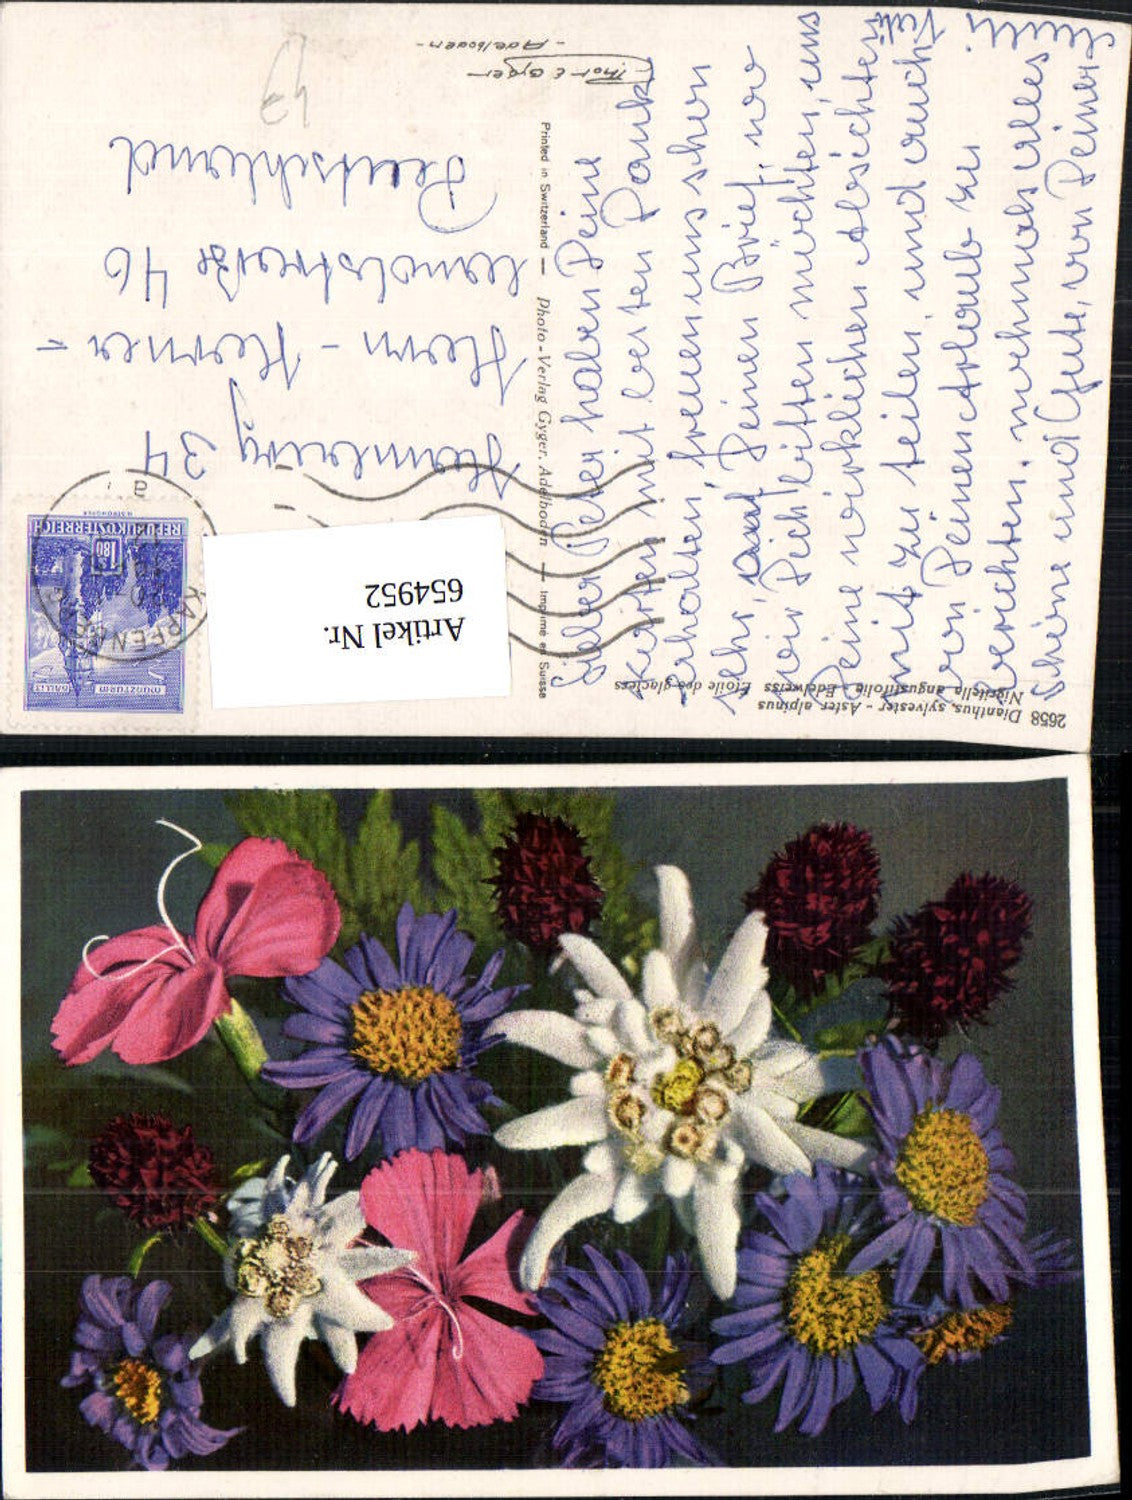 2658 Dianthus, sylvester - Aster alpinus
Nigritella angustifolia - Edelweiss Étoile des glaciers
Printed in Switzerland — Photo-Verlag Gyger, Adelboden — Imprimé en Suisse
Thor E Gyger
- Adelboden -
Lieber Peter haben Deine
Karten mit besten Dank
erhalten, freuen uns schon
sehr, auf Deinen Brief, wo
wir Dich bitten möchten, uns
Deine wirklichen Absichten
mit zu teilen, und auch
von Deinen Urlaub zu
berichten. nochmals alles
schöne und Gute, von Deiner
Hamburg 34
Horn - Horner -
46
Deutschland
REPUBLIK ÖSTERREICH
1.80
MÜNZTURM
HALL I.T.
KAPFENBERG
Artikel Nr.
654952